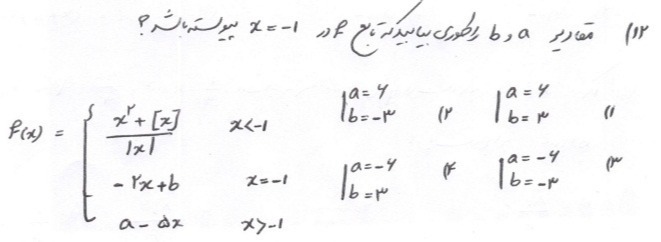 ۱۲) مقادیر a و b را طوری بیابید که تابع f در x = -1 پیوسته باشد؟
f(x) = { (x^۲ + [x]) / |x|   x < -1
-۲x + b   x = -1
a - ۵x   x > -1
۱) | a = ۶  b = ۳   ۲) | a = ۶  b = -۳
۳) | a = -۶  b = -۳   ۴) | a = -۶  b = ۳